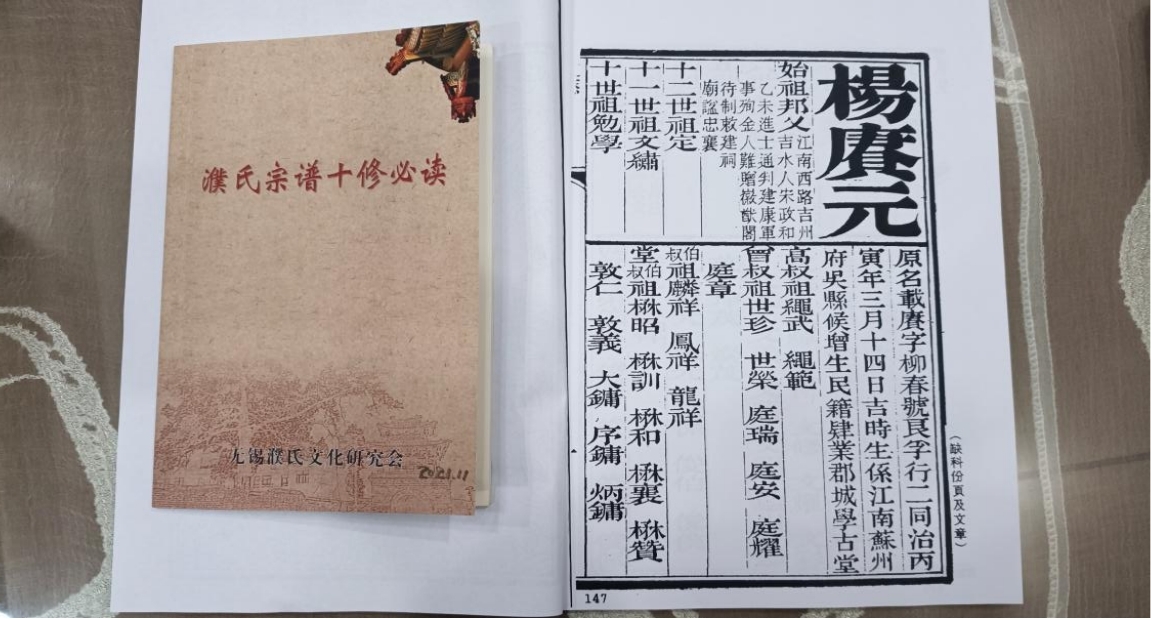 濮氏宗谱十修必读
无锡濮氏文化研究会
2021.11
楊賡元
原名載賡字柳春號艮孚行二同治丙
寅年三月十四日吉時生係江南蘇州
府吳縣候增生民籍肄業郡城學古堂
始祖邦乂
江南西路吉州
吉水人宋政和
乙未進士通判建康軍
事殉金人難贈徽猷閣
待制敕建祠
廟謚忠襄
十二世祖定
十一世祖文繡
十世祖勉學
高叔祖繩武 繩範
曾叔祖世珍 世榮 庭瑞 庭安 庭耀
庭章
伯叔祖麟祥 鳳祥 龍祥
堂伯叔祖楙昭 楙訓 楙和 楙襄 楙贊
敦仁 敦義 大鏞 序鏞 炳鏞
(缺科份頁及文章)
147